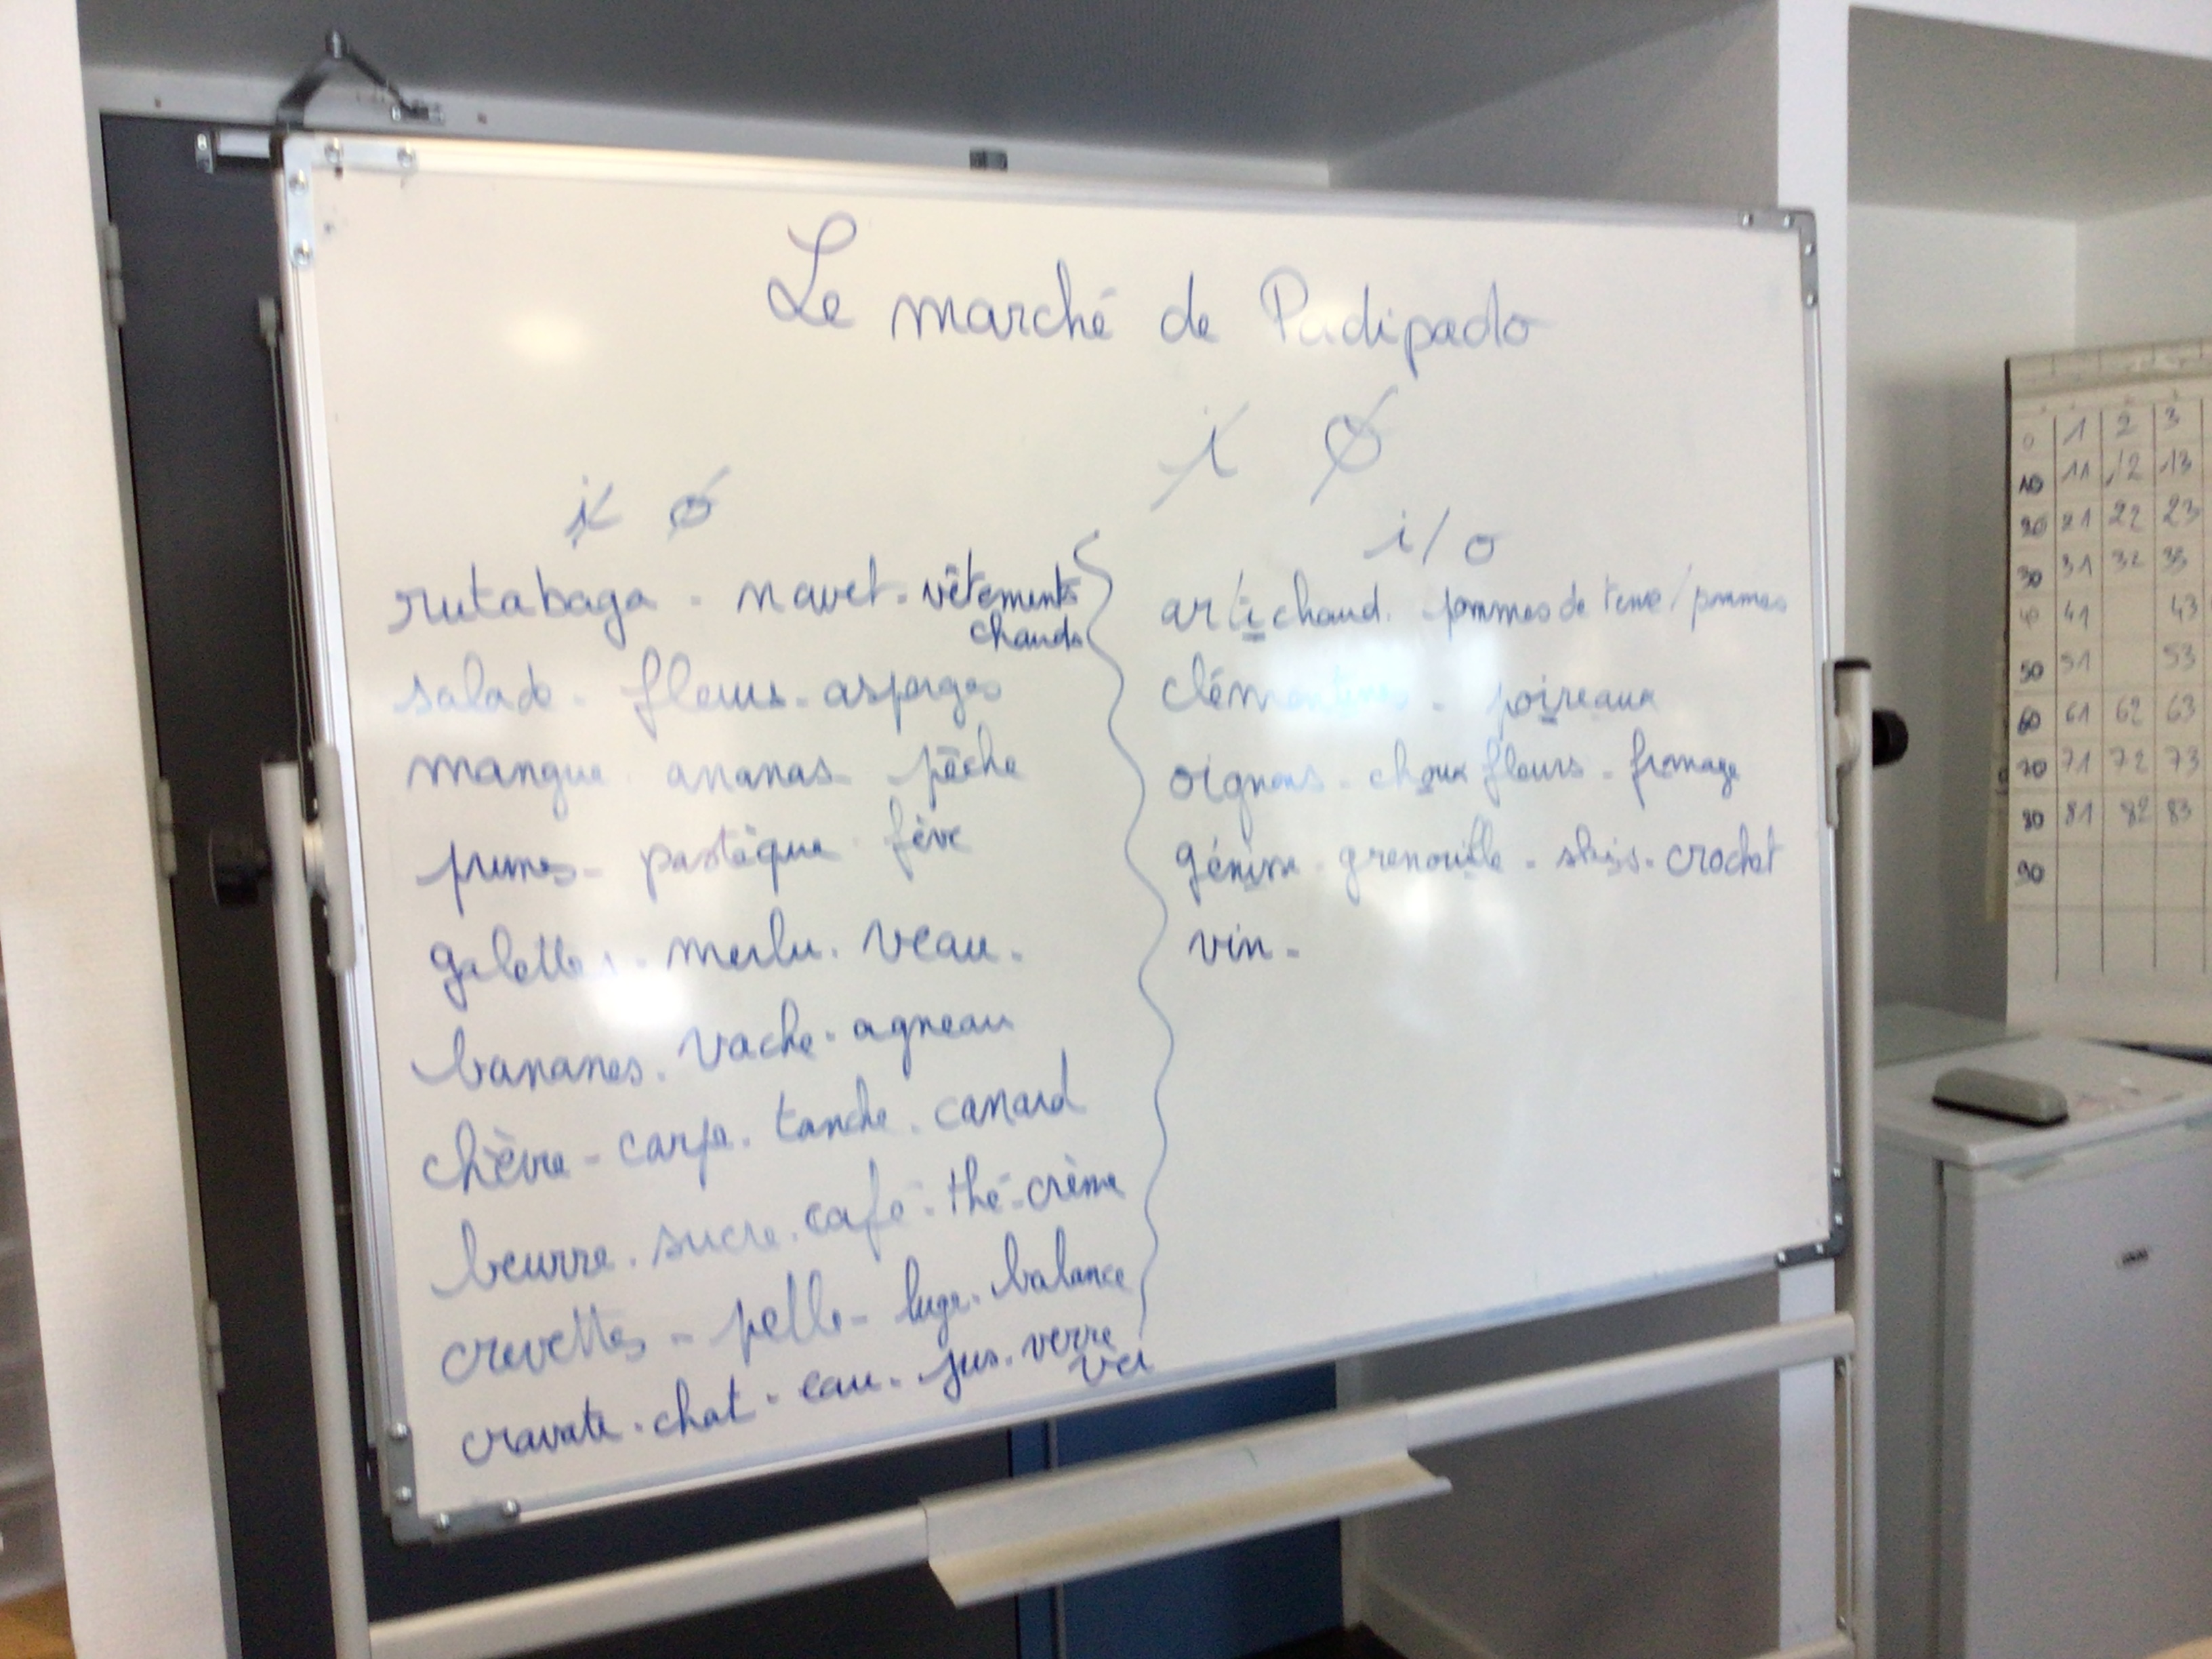 Le marché de Padipado
i o
i o
i/o
rutabaga - navet - vêtements
chauds
salade - fleurs - asperges
mangue - ananas - pêche
prunes - pastèque - fève
galettes - merlu - veau -
bananes - vache - agneau
chèvre - carpe - tanche - canard
beurre - sucre - café - thé - crème
crevettes - pelle - luge - balance
cravate - chat - eau - jus - verre
artichaud - pommes de terre / pommes
clémentines - poireaux
oignons - choux fleurs - fromage
génisse - grenouille - skis - crochet
vin -
0 1 2 3
10 11 12 13
20 21 22 23
30 31 32 33
40 41 43
50 51 53
60 61 62 63
70 71 72 73
80 81 82 83
90